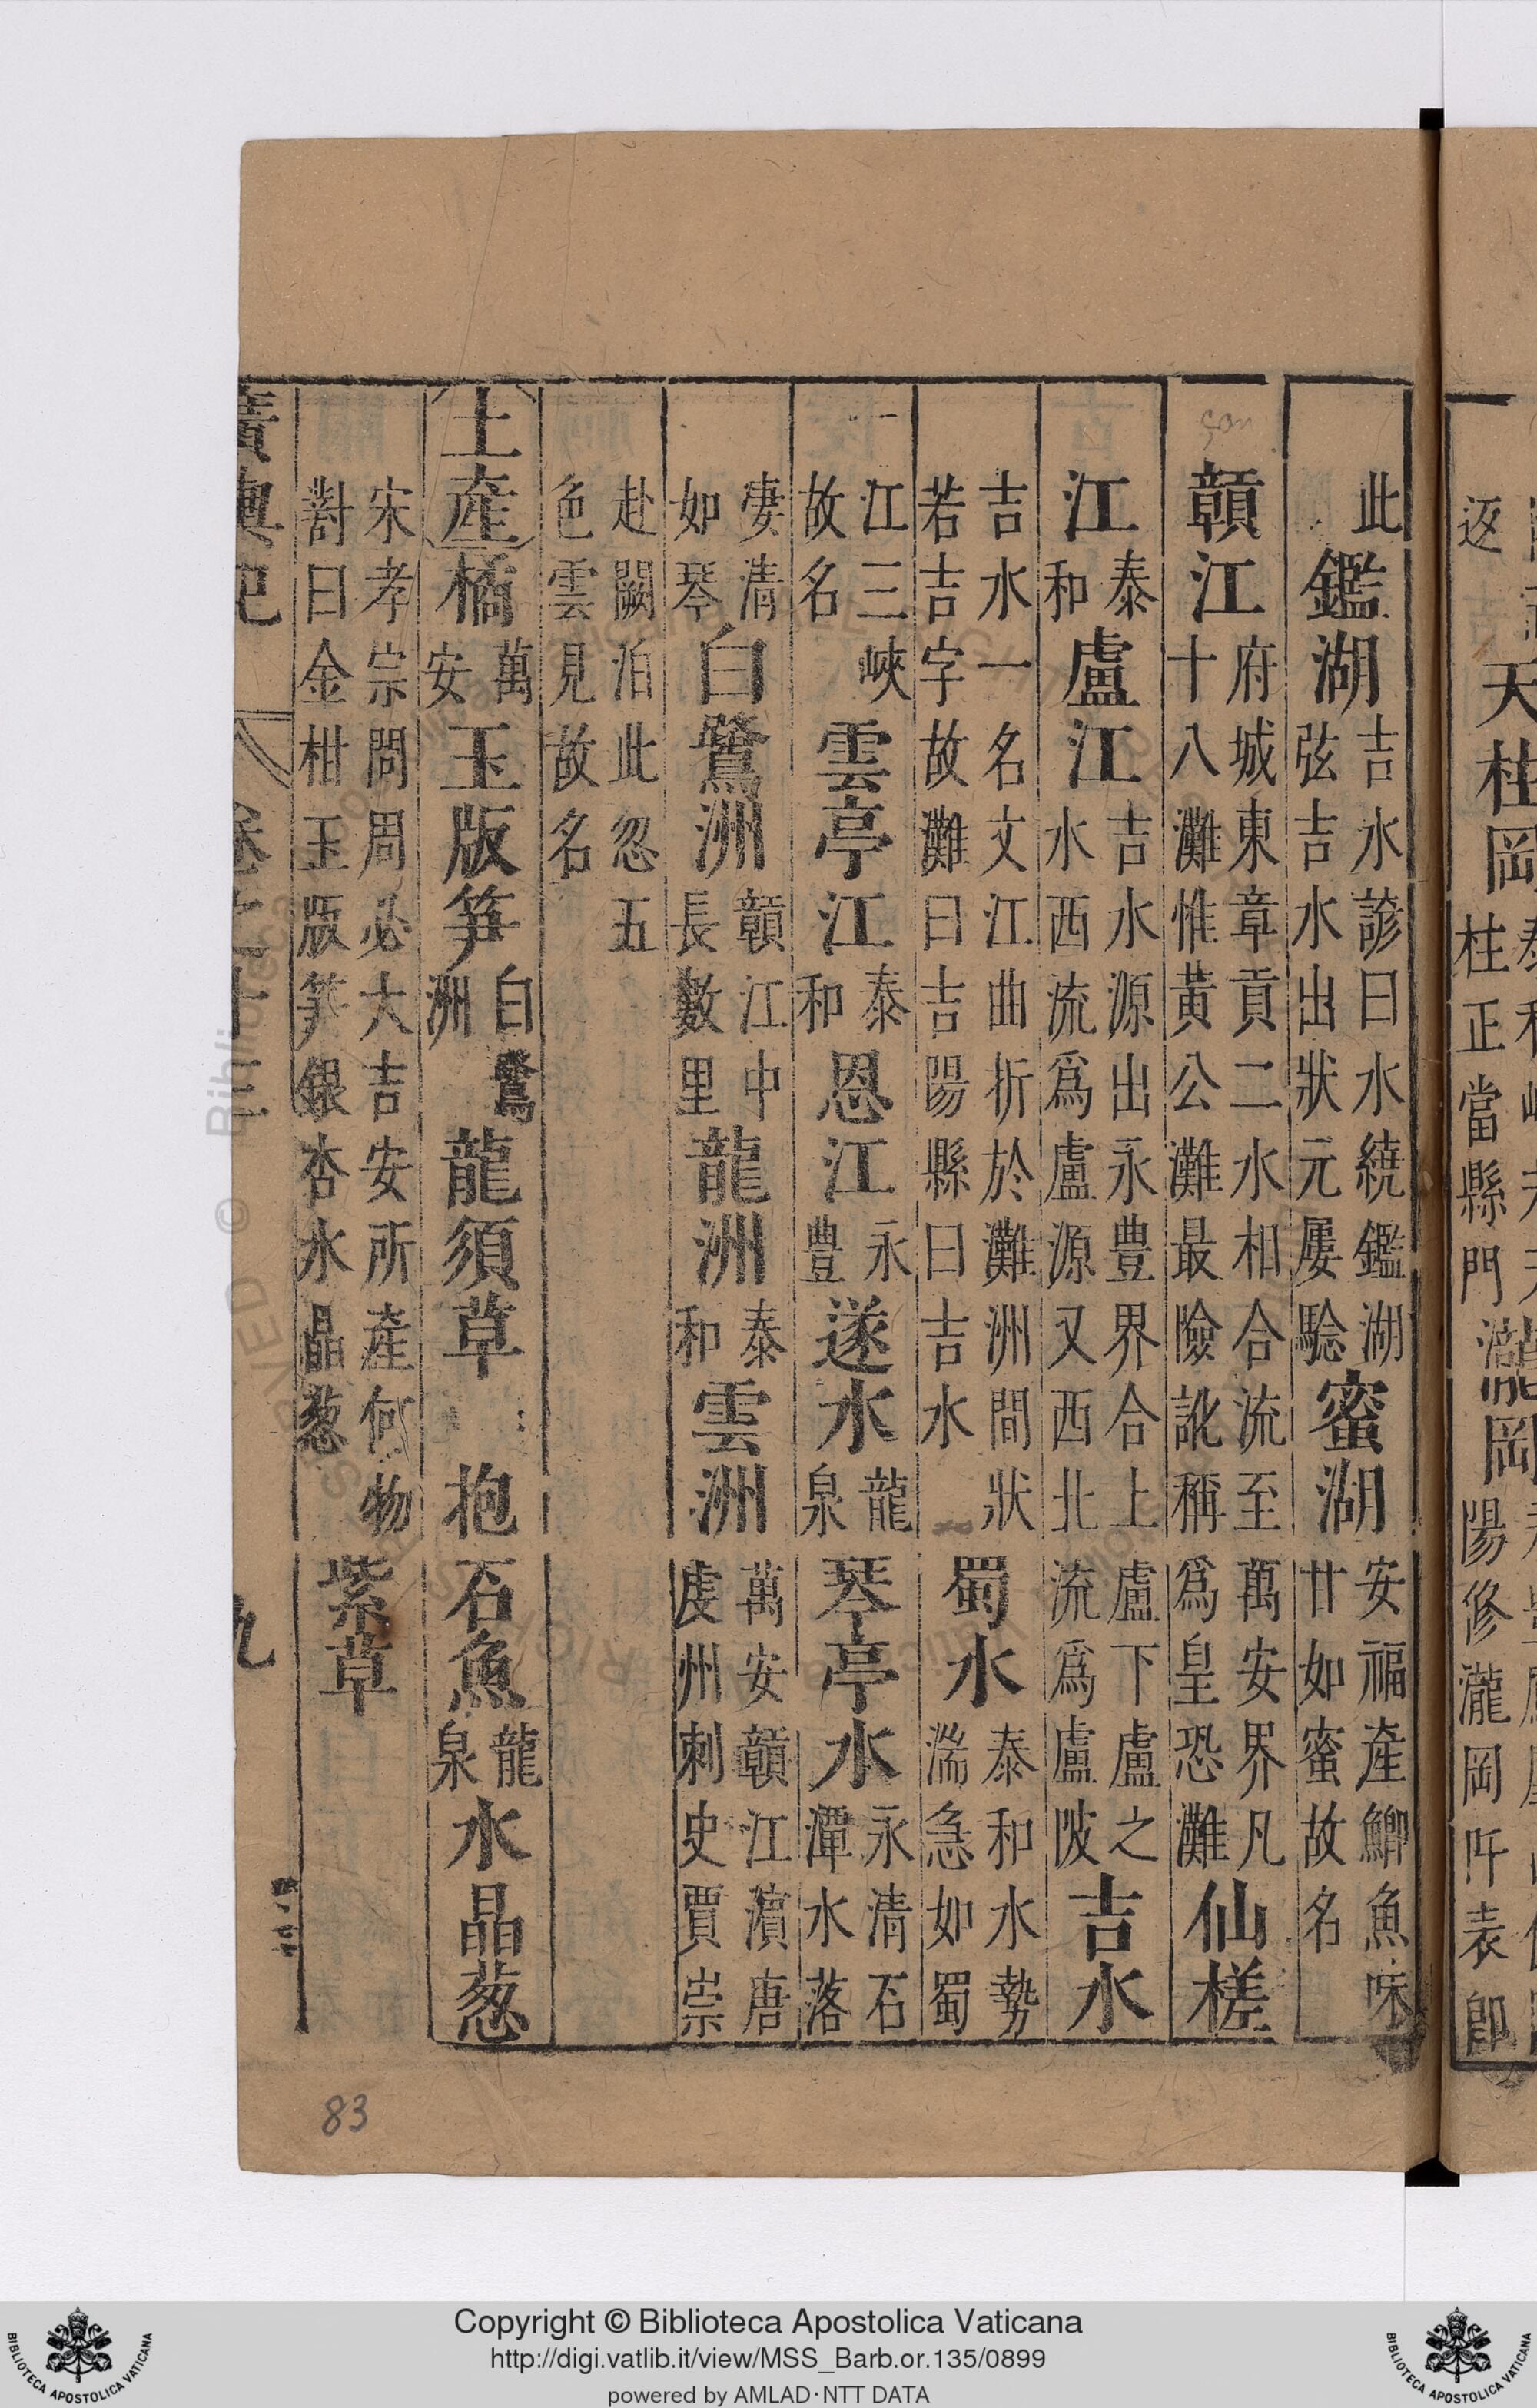 返天柱岡柱正當縣門瀧岡陽修瀧岡阡表即
此鑑湖吉水諺曰水繞鑑湖弦吉水出狀元屢驗蜜湖安福產鯽魚味甘如蜜故名
贛江府城東章貢二水相合流至萬安界凡十八灘惟黃公灘最險訛稱爲皇恐灘仙槎
江泰和盧江吉水源出永豊界合上盧下盧之水西流爲盧源又西北流爲盧陂吉水
吉水一名文江曲折於灘洲間狀若吉字故灘曰吉陽縣曰吉水蜀水泰和水勢湍急如蜀
江三峽故名雲亭江泰和恩江永豊遂水龍泉琴亭水永清石潭水落
凄清如琴白鷺洲贛江中長數里龍洲泰和雲洲萬安贛江濱唐虔州刺史賈崇
赴闕泊此忽五色雲見故名
土產橘萬安玉版笋白鷺洲龍須草抱石魚龍泉水晶葱
宋孝宗問周必大吉安所產何物對曰金柑玉版笋銀杏水晶葱紫草
廣輿記 卷之十三 九
83
Copyright © Biblioteca Apostolica Vaticana
http://digi.vatlib.it/view/MSS_Barb.or.135/0899
powered by AMLAD·NTT DATA
BIBLIOTECA APOSTOLICA VATICANA
BIBLIOTECA APOSTOLICA VATICANA